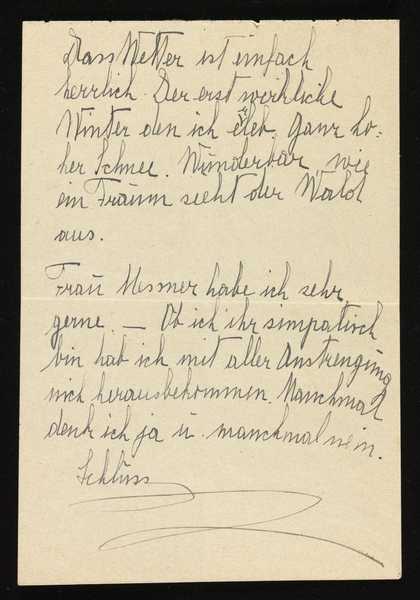 Dass Wetter ist einfach
herrlich. Der erst wirkliche
Winter den ich erleb. Ganz ho-
her Schnee. Wunderbar, wie
ein Traum sieht der Wald
aus.
Frau Messmer habe ich sehr
gerne. — Ob ich ihr simpatisch
bin hab ich mit aller Anstrengung
nich herausbekommen. Manchmal
denk ich ja u. manchmal nein.
Schluss